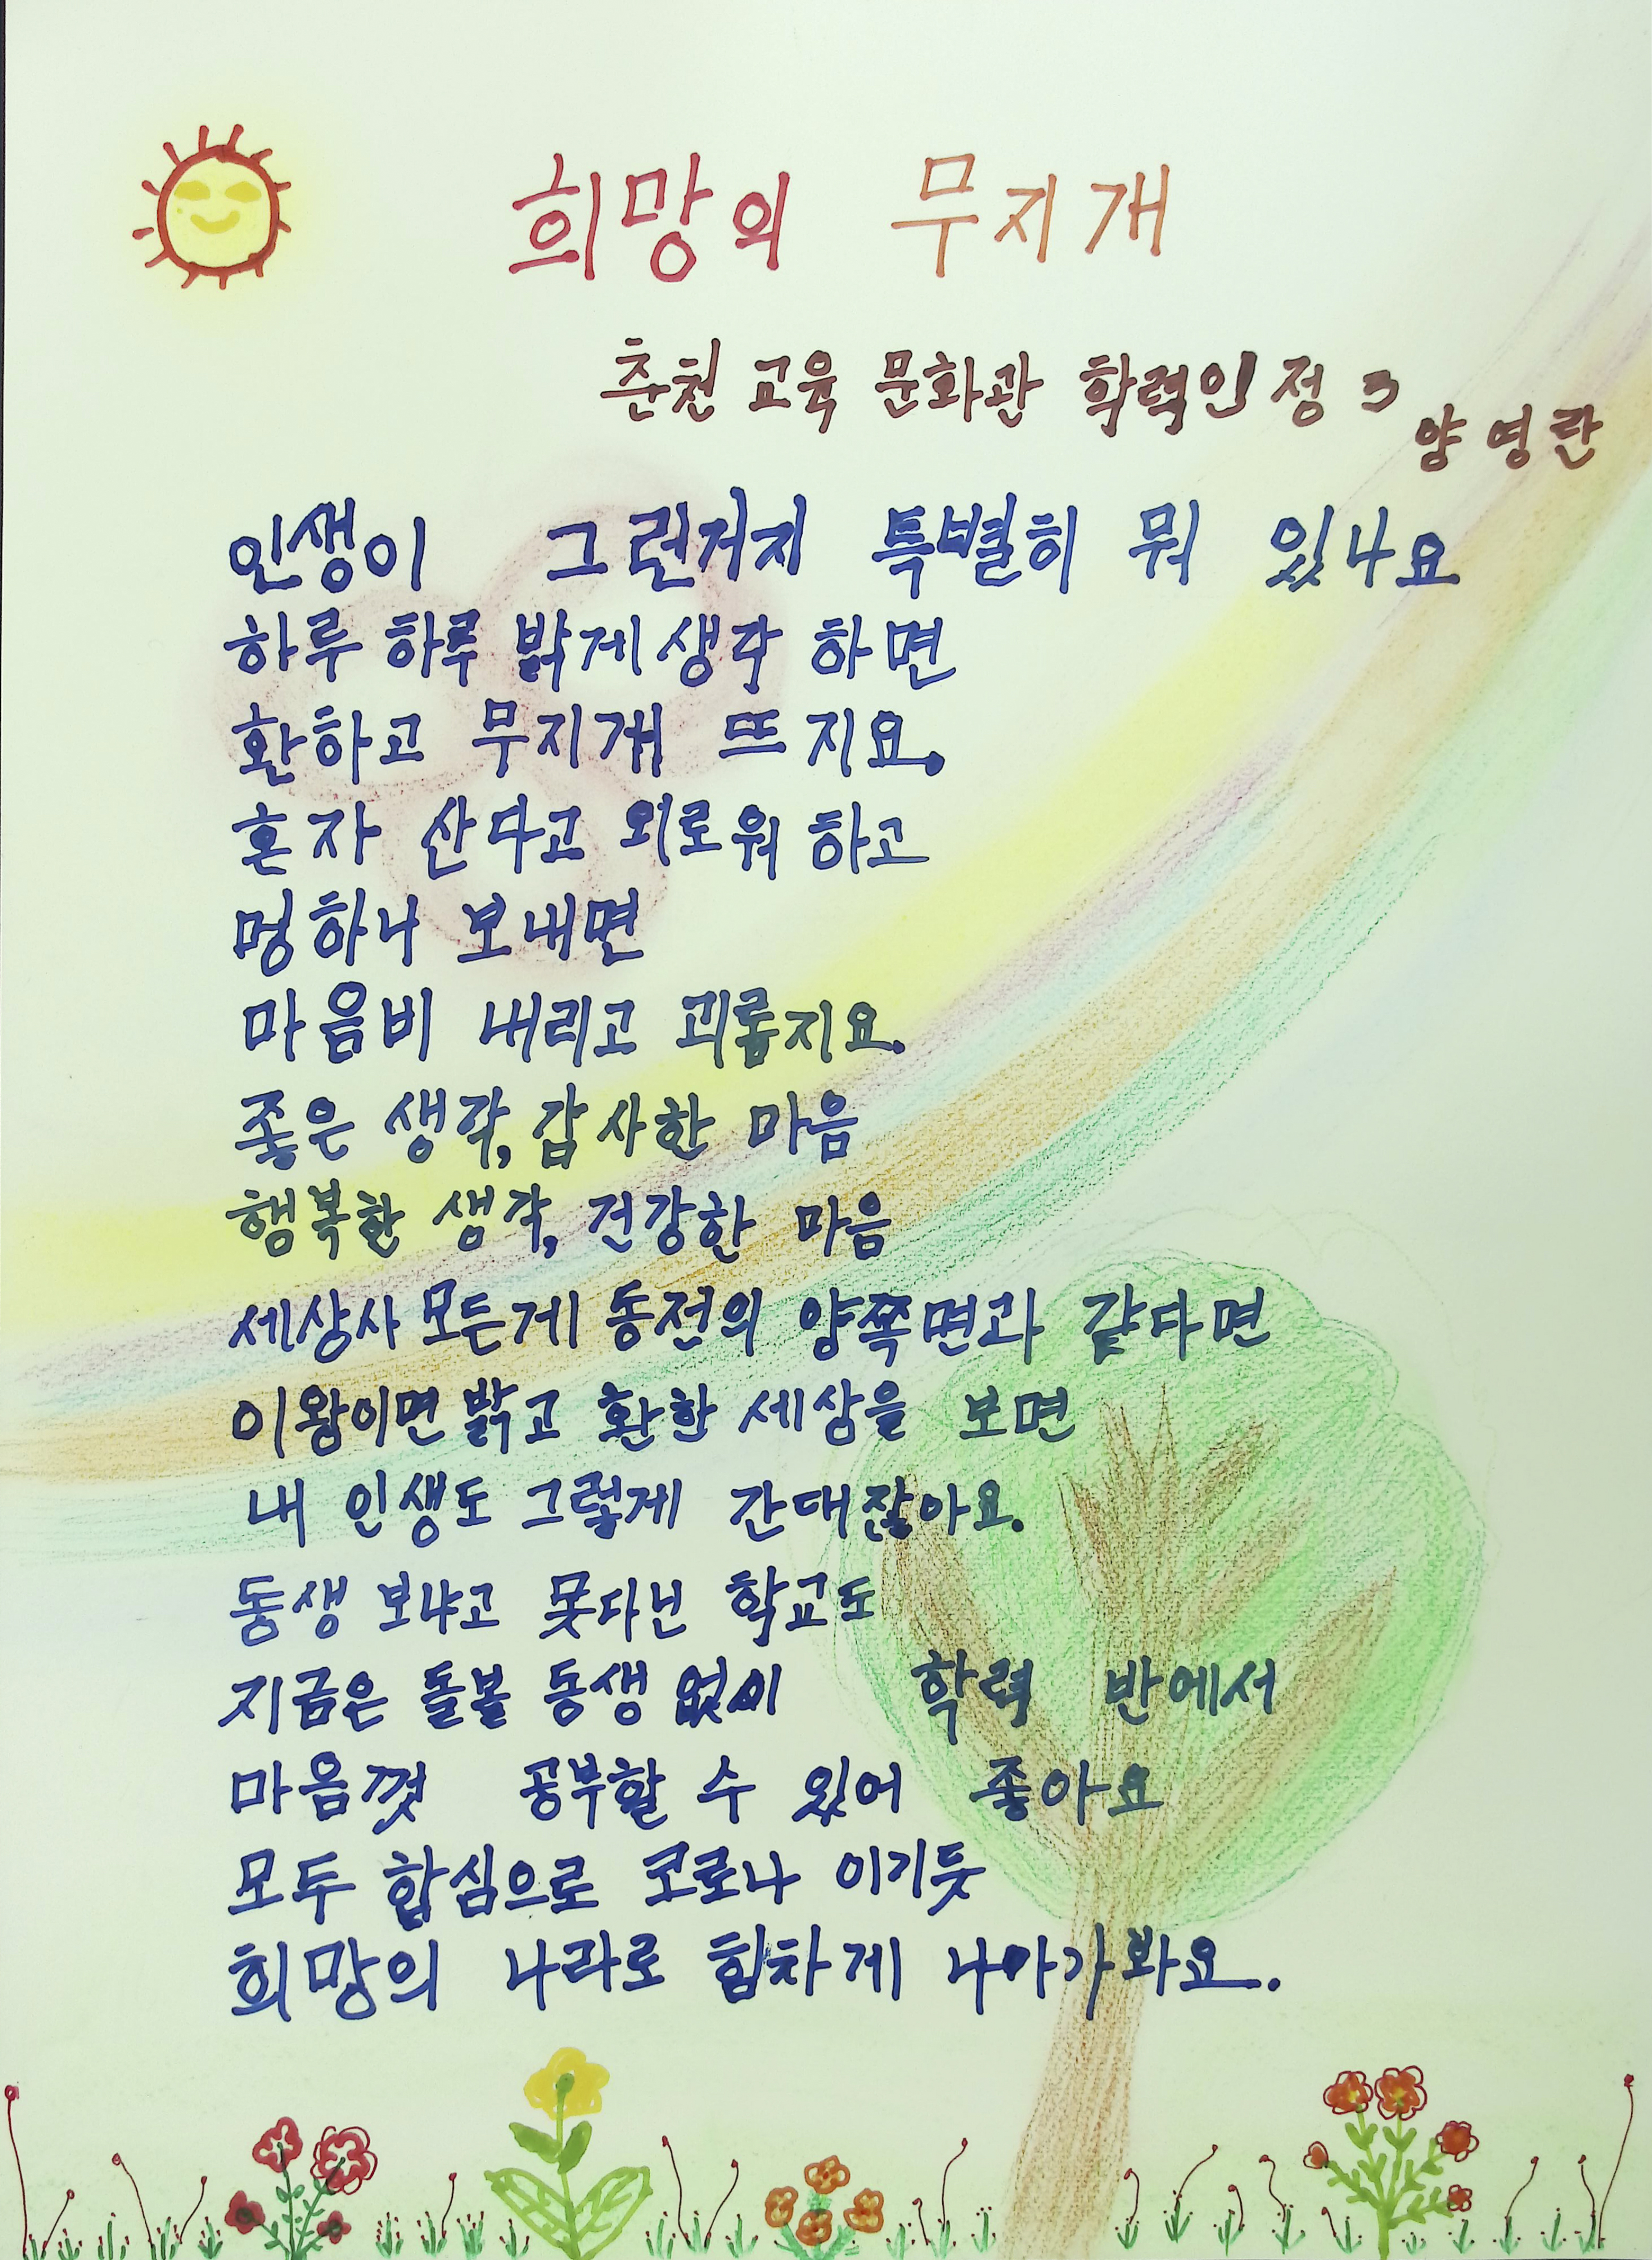 희망의 무지개
춘천 교육 문화관 학력인정 3
양영란
인생이 그런거지 특별히 뭐 있나요
하루 하루 밝게 생각 하면
환하고 무지개 뜨지요.
혼자 산다고 외로워 하고
멍하니 보내면
마음비 내리고 괴롭지요.
좋은 생각, 감사한 마음
행복한 생각, 건강한 마음
세상사 모든게 동전의 양쪽면과 같다면
이왕이면 밝고 환한 세상을 보면
내 인생도 그렇게 간대잖아요.
동생 보냐고 못다닌 학교도
지금은 돌볼 동생 없이 학력 반에서
마음껏 공부할 수 있어 좋아요
모두 합심으로 코로나 이기듯
희망의 나라로 힘차게 나아가봐요.